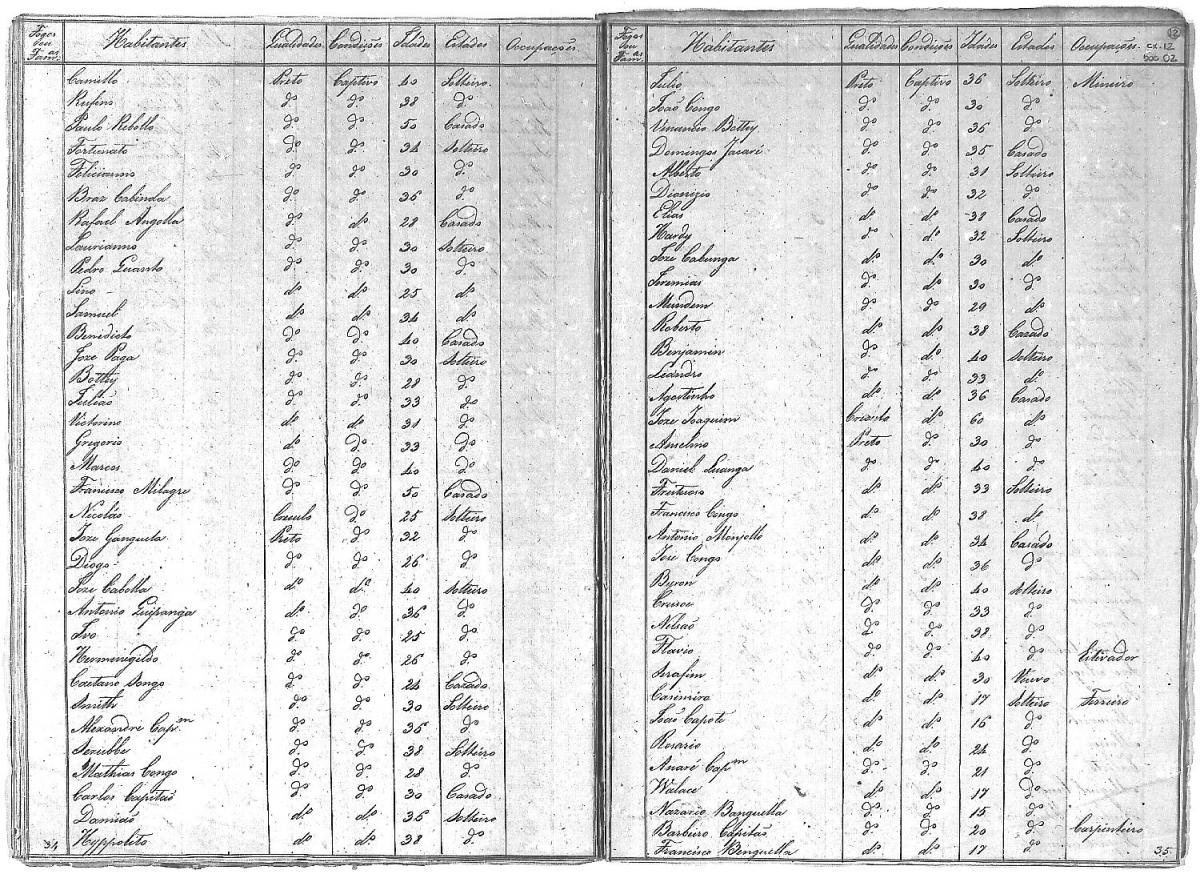 Fogos ou as Fam. Habitantes Qualidades Condições Idades Estados Occupações
Camillo Preto Captivo 40 Solteiro
Rufino dº dº 38 dº
Paulo Rebollo dº dº 50 Casado
Fortunato dº dº 34 Solteiro
Felicianno dº dº 30 dº
Braz Cabinda dº dº 36 dº
Rafael Angolla dº dº 28 Casado
Laurianno dº dº 30 Solteiro
Pedro Quanto dº dº 30 dº
Lino dº dº 25 dº
Samuel dº dº 34 dº
Benedicto dº dº 40 Casado
Joze Paga dº dº 30 Solteiro
Bottey dº dº 28 dº
Julião dº dº 33 dº
Victorino dº dº 31 dº
Gregorio dº dº 33 dº
Marcos dº dº 40 dº
Francisco Milagre dº dº 50 Casado
Nicolás Creoulo dº 25 Solteiro
Joze Ganguela Preto dº 32 dº
Diogo dº dº 26 dº
Joze Cabolla dº dº 40 Solteiro
Antonio Quipanga dº dº 36 dº
Ivo dº dº 25 dº
Hermenegildo dº dº 26 dº
Caetano Songo dº dº 24 Cazado
Smith dº dº 30 Solteiro
Alexandre Cap.m dº dº 35 dº
dº dº 38 Solteiro
Mathias Congo dº dº 28 dº
Carlos Capitão dº dº 30 Casado
Damião dº dº 35 Solteiro
34 Hyppolito dº dº 38 dº
12
cx. 12
DOC 02
Fogos ou as Fam. Habitantes Qualidades Condições Idades Estados Occupações
Julio Preto Captivo 36 Solteiro Mineiro
João Congo dº dº 30 dº
Venancio Bottey dº dº 35 dº
Domingos Jacaré dº dº 35 Casado
Alberto dº dº 31 Solteiro
Dionizio dº dº 32 dº
Elias dº dº 38 Casado
Hardy dº dº 32 Solteiro
Joze Cabunga dº dº 30 dº
Jeremias dº dº 30 dº
Mundem dº dº 29 dº
Roberto dº dº 38 Cazado
Benjamin dº dº 40 Solteiro
Leandro dº dº 33 dº
Agostinho dº dº 36 Casado
Joze Joaquim dº 60 dº
Anselmo Preto dº 30 dº
Daniel Luanga dº dº 40 dº
Frutuoso dº dº 33 Solteiro
Francisco Congo dº dº 38 dº
Antonio Monjollo dº dº 34 Casado
Joze Congo dº dº 36 dº
Byron dº dº 40 Solteiro
Crusoe dº dº 33 dº
Nelsão dº dº 38 dº
Flavio dº dº 40 dº Estivador
Serafim dº dº 30 Viuvo
Casimiro dº dº 17 Solteiro Ferreiro
João Capote dº dº 16 dº
Rosario dº dº 24 dº
André Cap.m dº dº 21 dº
Walace dº dº 17 dº
Nazario Banguella dº dº 15 dº
Barbeiro Capitão dº dº 20 dº Carpinteiro
Francisco Benguella dº dº 17 35